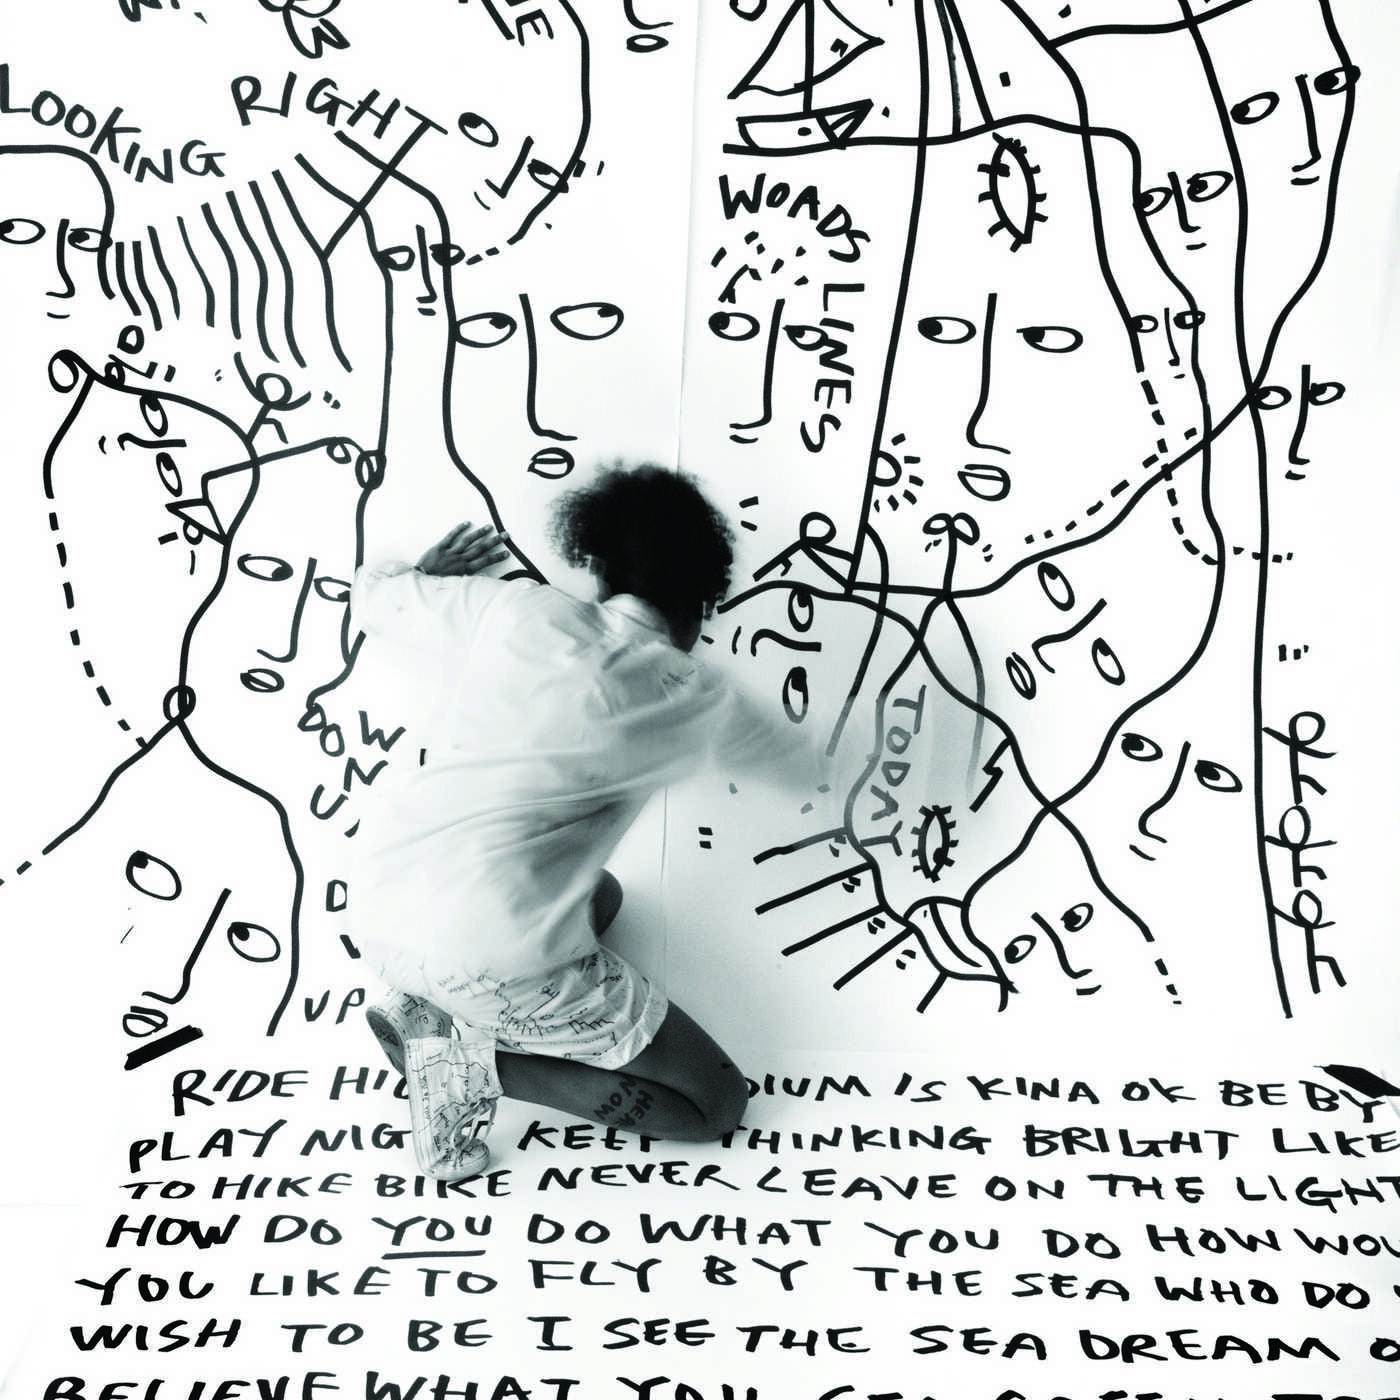 LOOKING
RIGHT
WOADS
LINES
TODAY
DOW
N
U
D
UP
HERE
NOW
RIDE IUM IS KINA OK BE BY
PLAY KEEP THINKING BRIGHT LIKE
TO HIKE BIKE NEVER LEAVE ON THE LIGHT
HOW DO YOU DO WHAT YOU DO HOW WOU
YOU LIKE TO FLY BY THE SEA WHO DO
WISH TO BE I SEE THE SEA DREAM
BELIEVE WHAT YOU